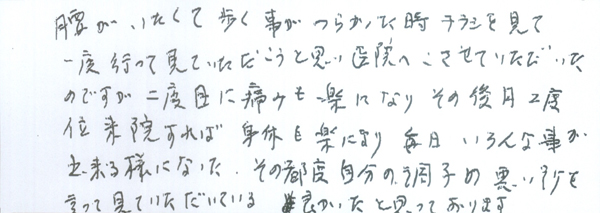 腰がいたくて歩く事がつらかった時チラシを見て
一度行って見ていただこうと思い医院へこさせていただいた
のですが二度目に痛みも楽になりその後月2度
位来院すれば身体も楽になり毎日いろんな事が
出来る様になった.その都度自分の調子の悪い所を
言って見ていただいている 良かったと思っております